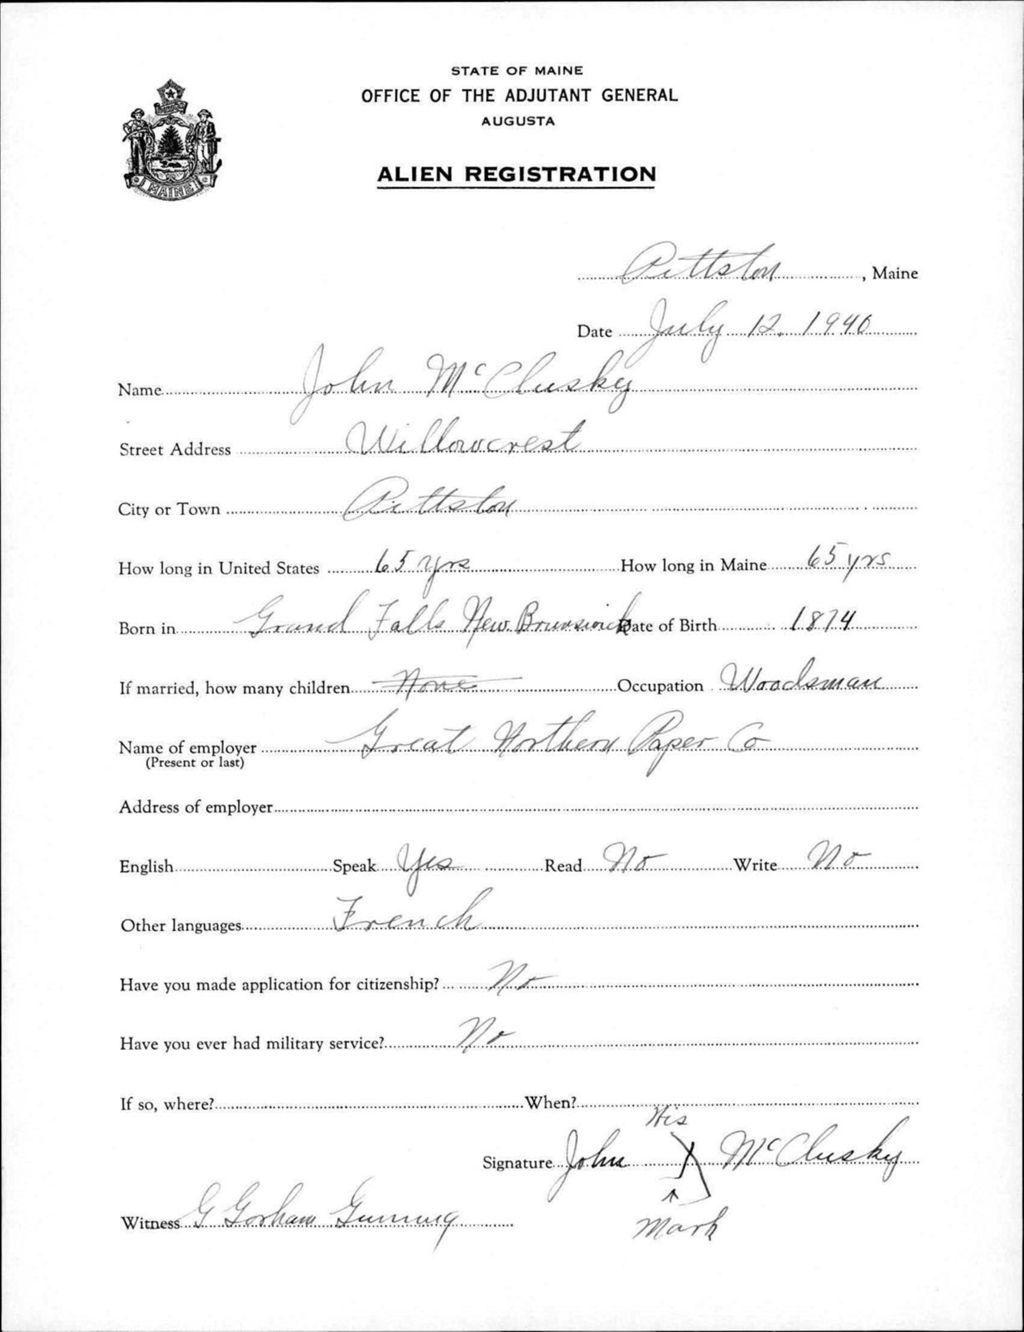 STATE OF MAINE
OFFICE OF THE ADJUTANT GENERAL
AUGUSTA
ALIEN REGISTRATION
MAINE
Pittston, Maine
Date July 12, 1940
Name John McCluskey
Street Address Willowcrest
City or Town Pittston
How long in United States 65 yrs How long in Maine 65 yrs
Born in Grand Falls New Brunswick Date of Birth 1874
If married, how many children None Occupation Woodsman
Name of employer Great Northern Paper Co
(Present or last)
Address of employer
English Speak Yes Read No Write No
Other languages French
Have you made application for citizenship? No
Have you ever had military service? No
If so, where? When?
His
Signature John X McCluskey
Mark
Witness G Gorham Gunning